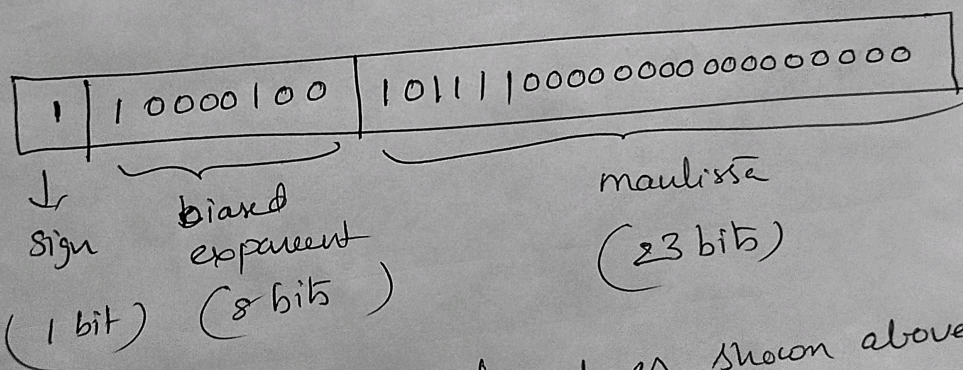 1 10000100 10111100000000000000000
sign biased exponent mantissa
(1 bit) (8 bits) (23 bits)
shown above